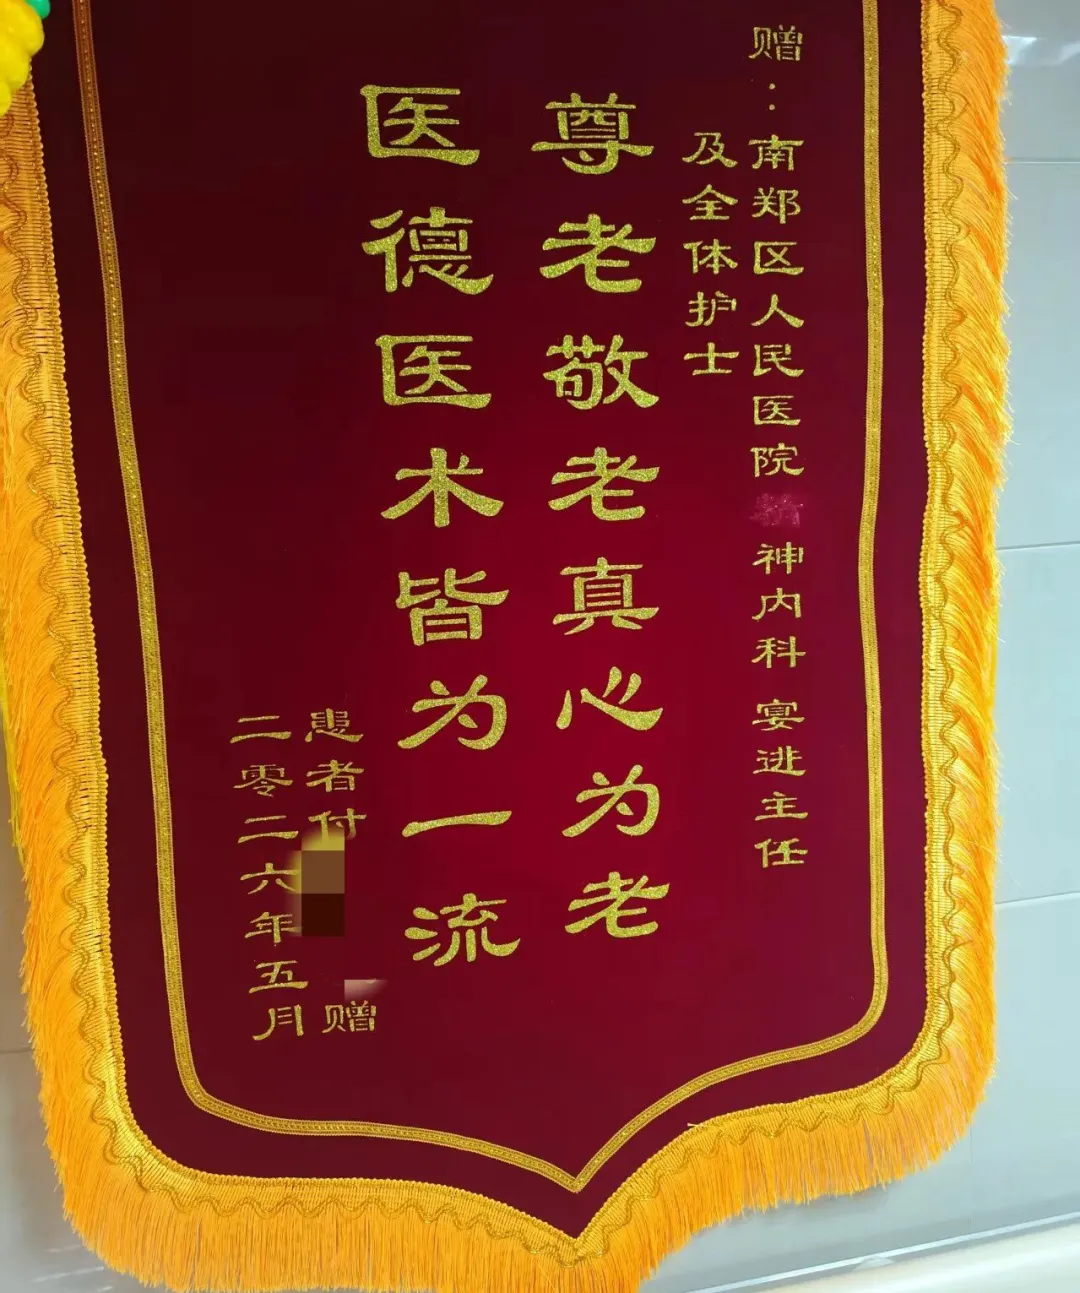 赠：南郑区人民医院 神内科 宴进主任
及全体护士
尊老敬老真心为老
医德医术皆为一流
患者付 赠
二零二六年五月